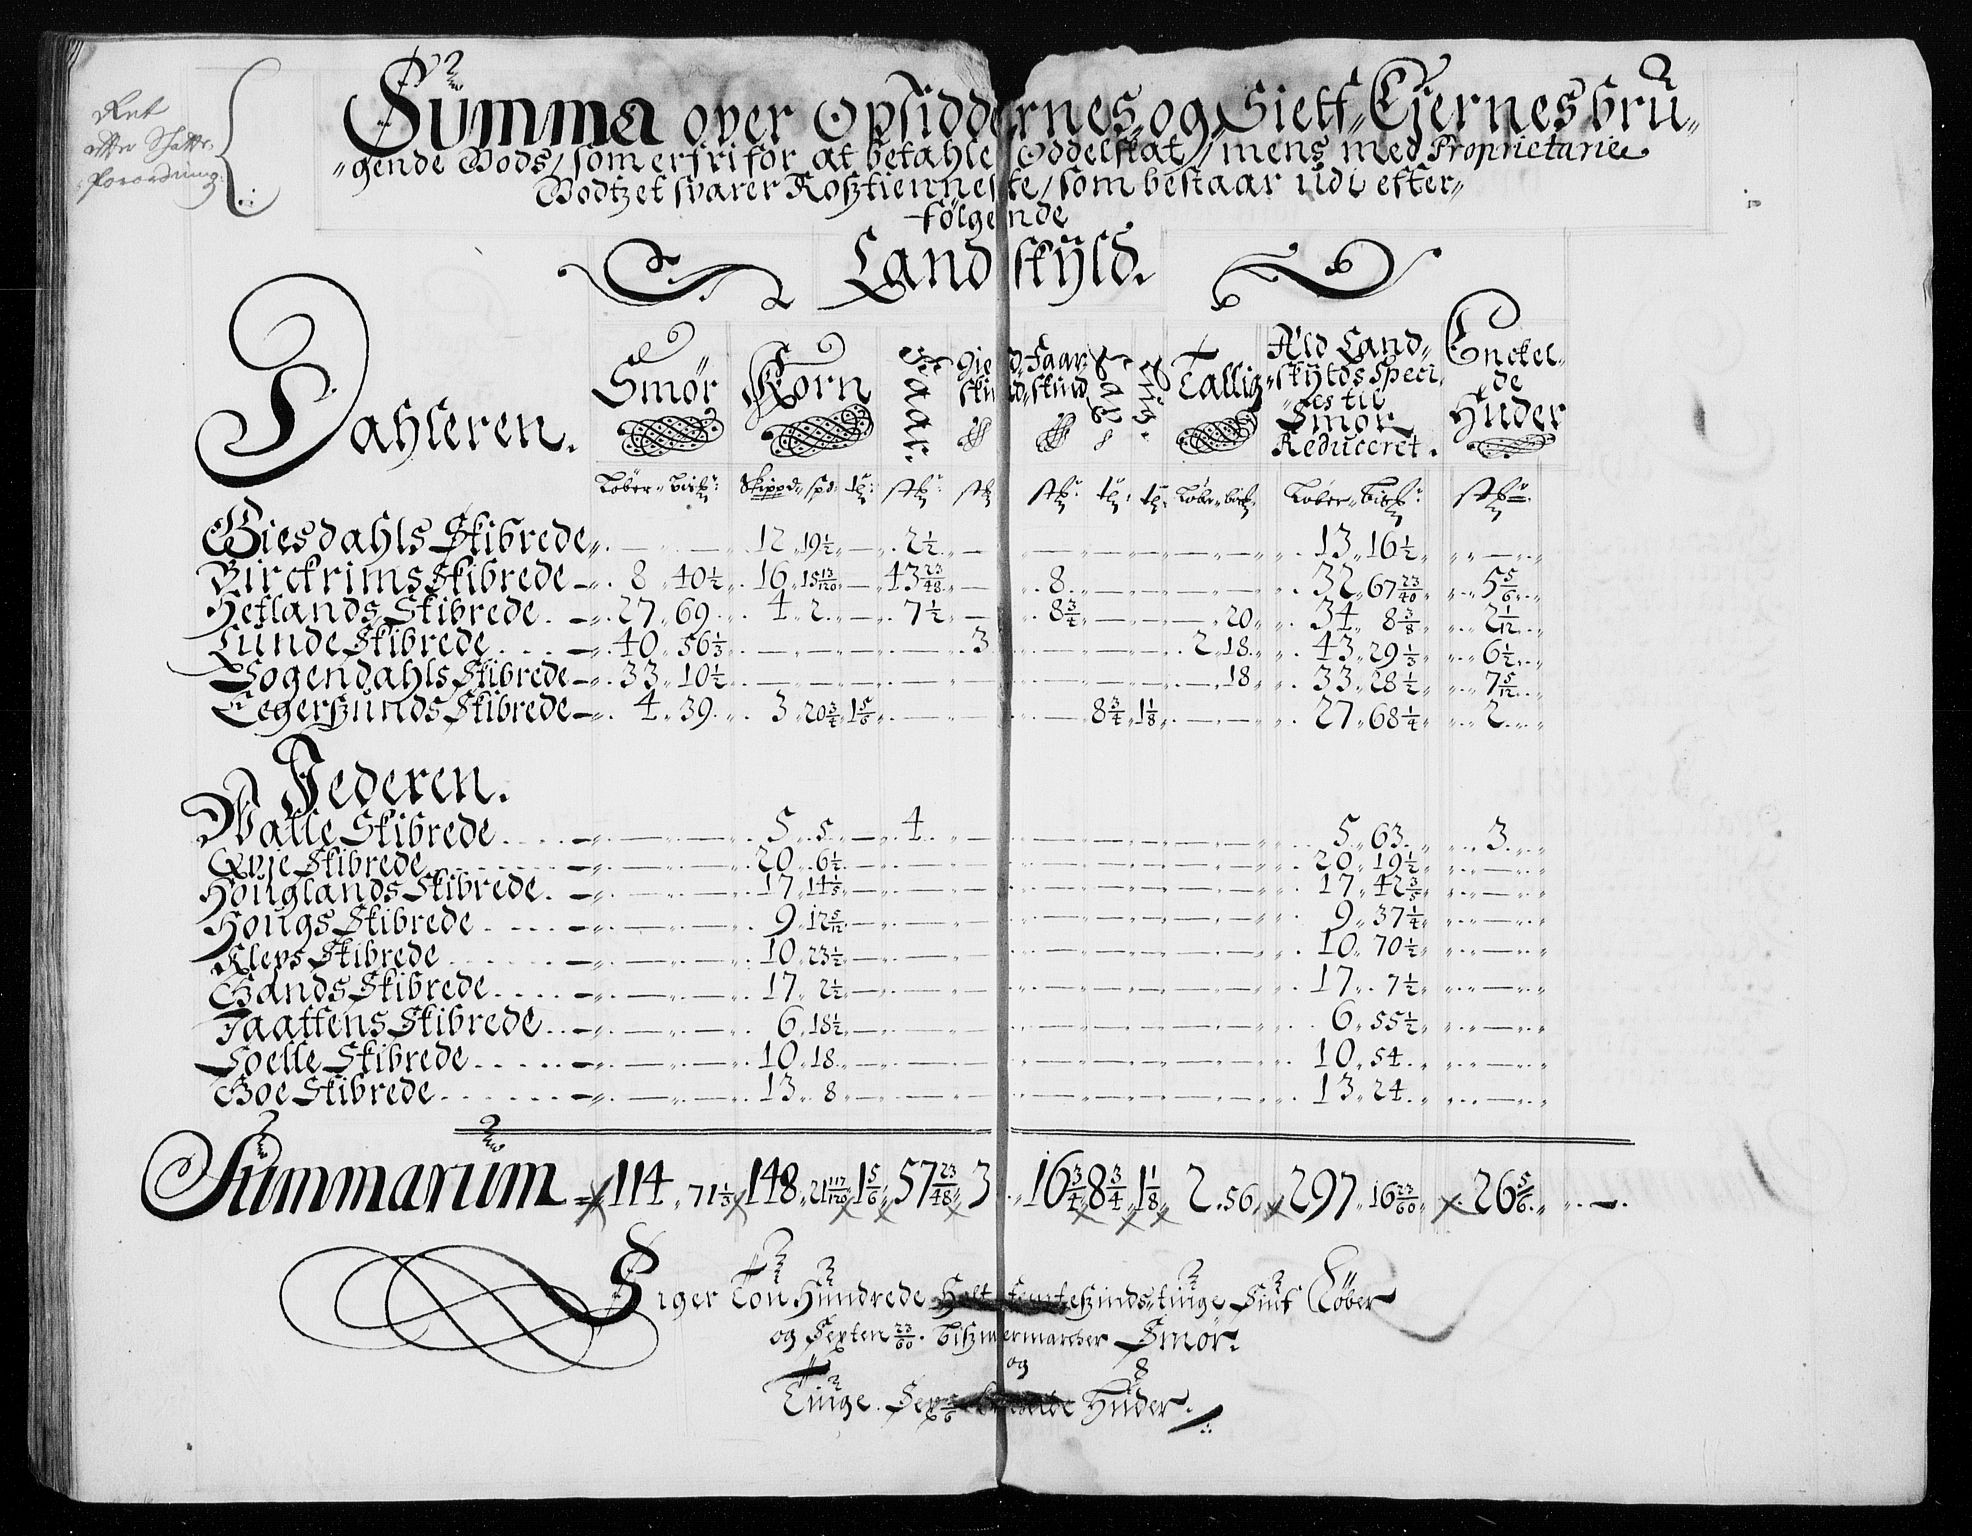 Ret
efter Skatte-
forordning.
Summa over Opsiddernes og Sielf Ejernes bru-
gende Gods, som er fri for at betahle Oddelskat, mens med Proprietarie
Godtzet svarer Rosztienneste, som bestaar udi efter-
følgende
Landskÿld.
Dahleren. Smør Korn Faar Gied skind Faar skind Tallig Ald Land- skÿlds Speci- es til Smør Reduceret. Enckel- de Huder
Løber. Bisk. Skippd. spd. tl. stk. stk. stk. tl. tl. Løber. bisk. Løber. Bisk. stk.
Giesdahls Skibrede — — 12 19½ — 2½ — — — — — — 13 16½ —
Birckrims Skibrede 8 40½ 16 15 13/120 — 43 23/48 — 8 — — — — 32 67 23/40 5 5/6
Hetlands Skibrede 27 69 4 2 — 7½ — 8¾ — — — 20 34 8 3/8 2 1/12
Lunde Skibrede 40 56⅓ — — — — 3 — — — 2 18 43 29⅓ 6½
Sogendahls Skibrede 33 10½ — — — — — — — — — 18 33 28½ 7 5/12
Eegerszunds Skibrede 4 39 3 20¾ 1 5/6 — — — 8¾ 1⅛ — — 27 68¼ 2
Jederen.
Watle Skibrede — — 5 5 — 4 — — — — — — 5 63 3
Qvie Skibrede — — 20 6½ — — — — — — — — 20 19½ —
Höuglands Skibrede — — 17 14⅕ — — — — — — — — 17 42⅗ —
Hougs Skibrede — — 9 12 5/12 — — — — — — — — 9 37¼ —
Kleps Skibrede — — 10 23½ — — — — — — — — 10 70½ —
Gands Skibrede — — 17 2½ — — — — — — — — 17 7½ —
Jaattens Skibrede — — 6 18½ — — — — — — — — 6 55½ —
Soelle Skibrede — — 10 18 — — — — — — — — 10 54 —
Goe Skibrede — — 13 8 — — — — — — — — 13 24 —
Summarum 114 71⅓ 148 21 117/120 1 5/6 57 23/48 3 16¾ 8¾ 1⅛ 2 56 297 16 23/60 26 5/6 —
Siger Tou Hundrede Halfemteszindstiuge Siuf Løber
og Sexten 23/60 biszmermarcher Smør.
og
Tiuge Sex 5/6 Huder.